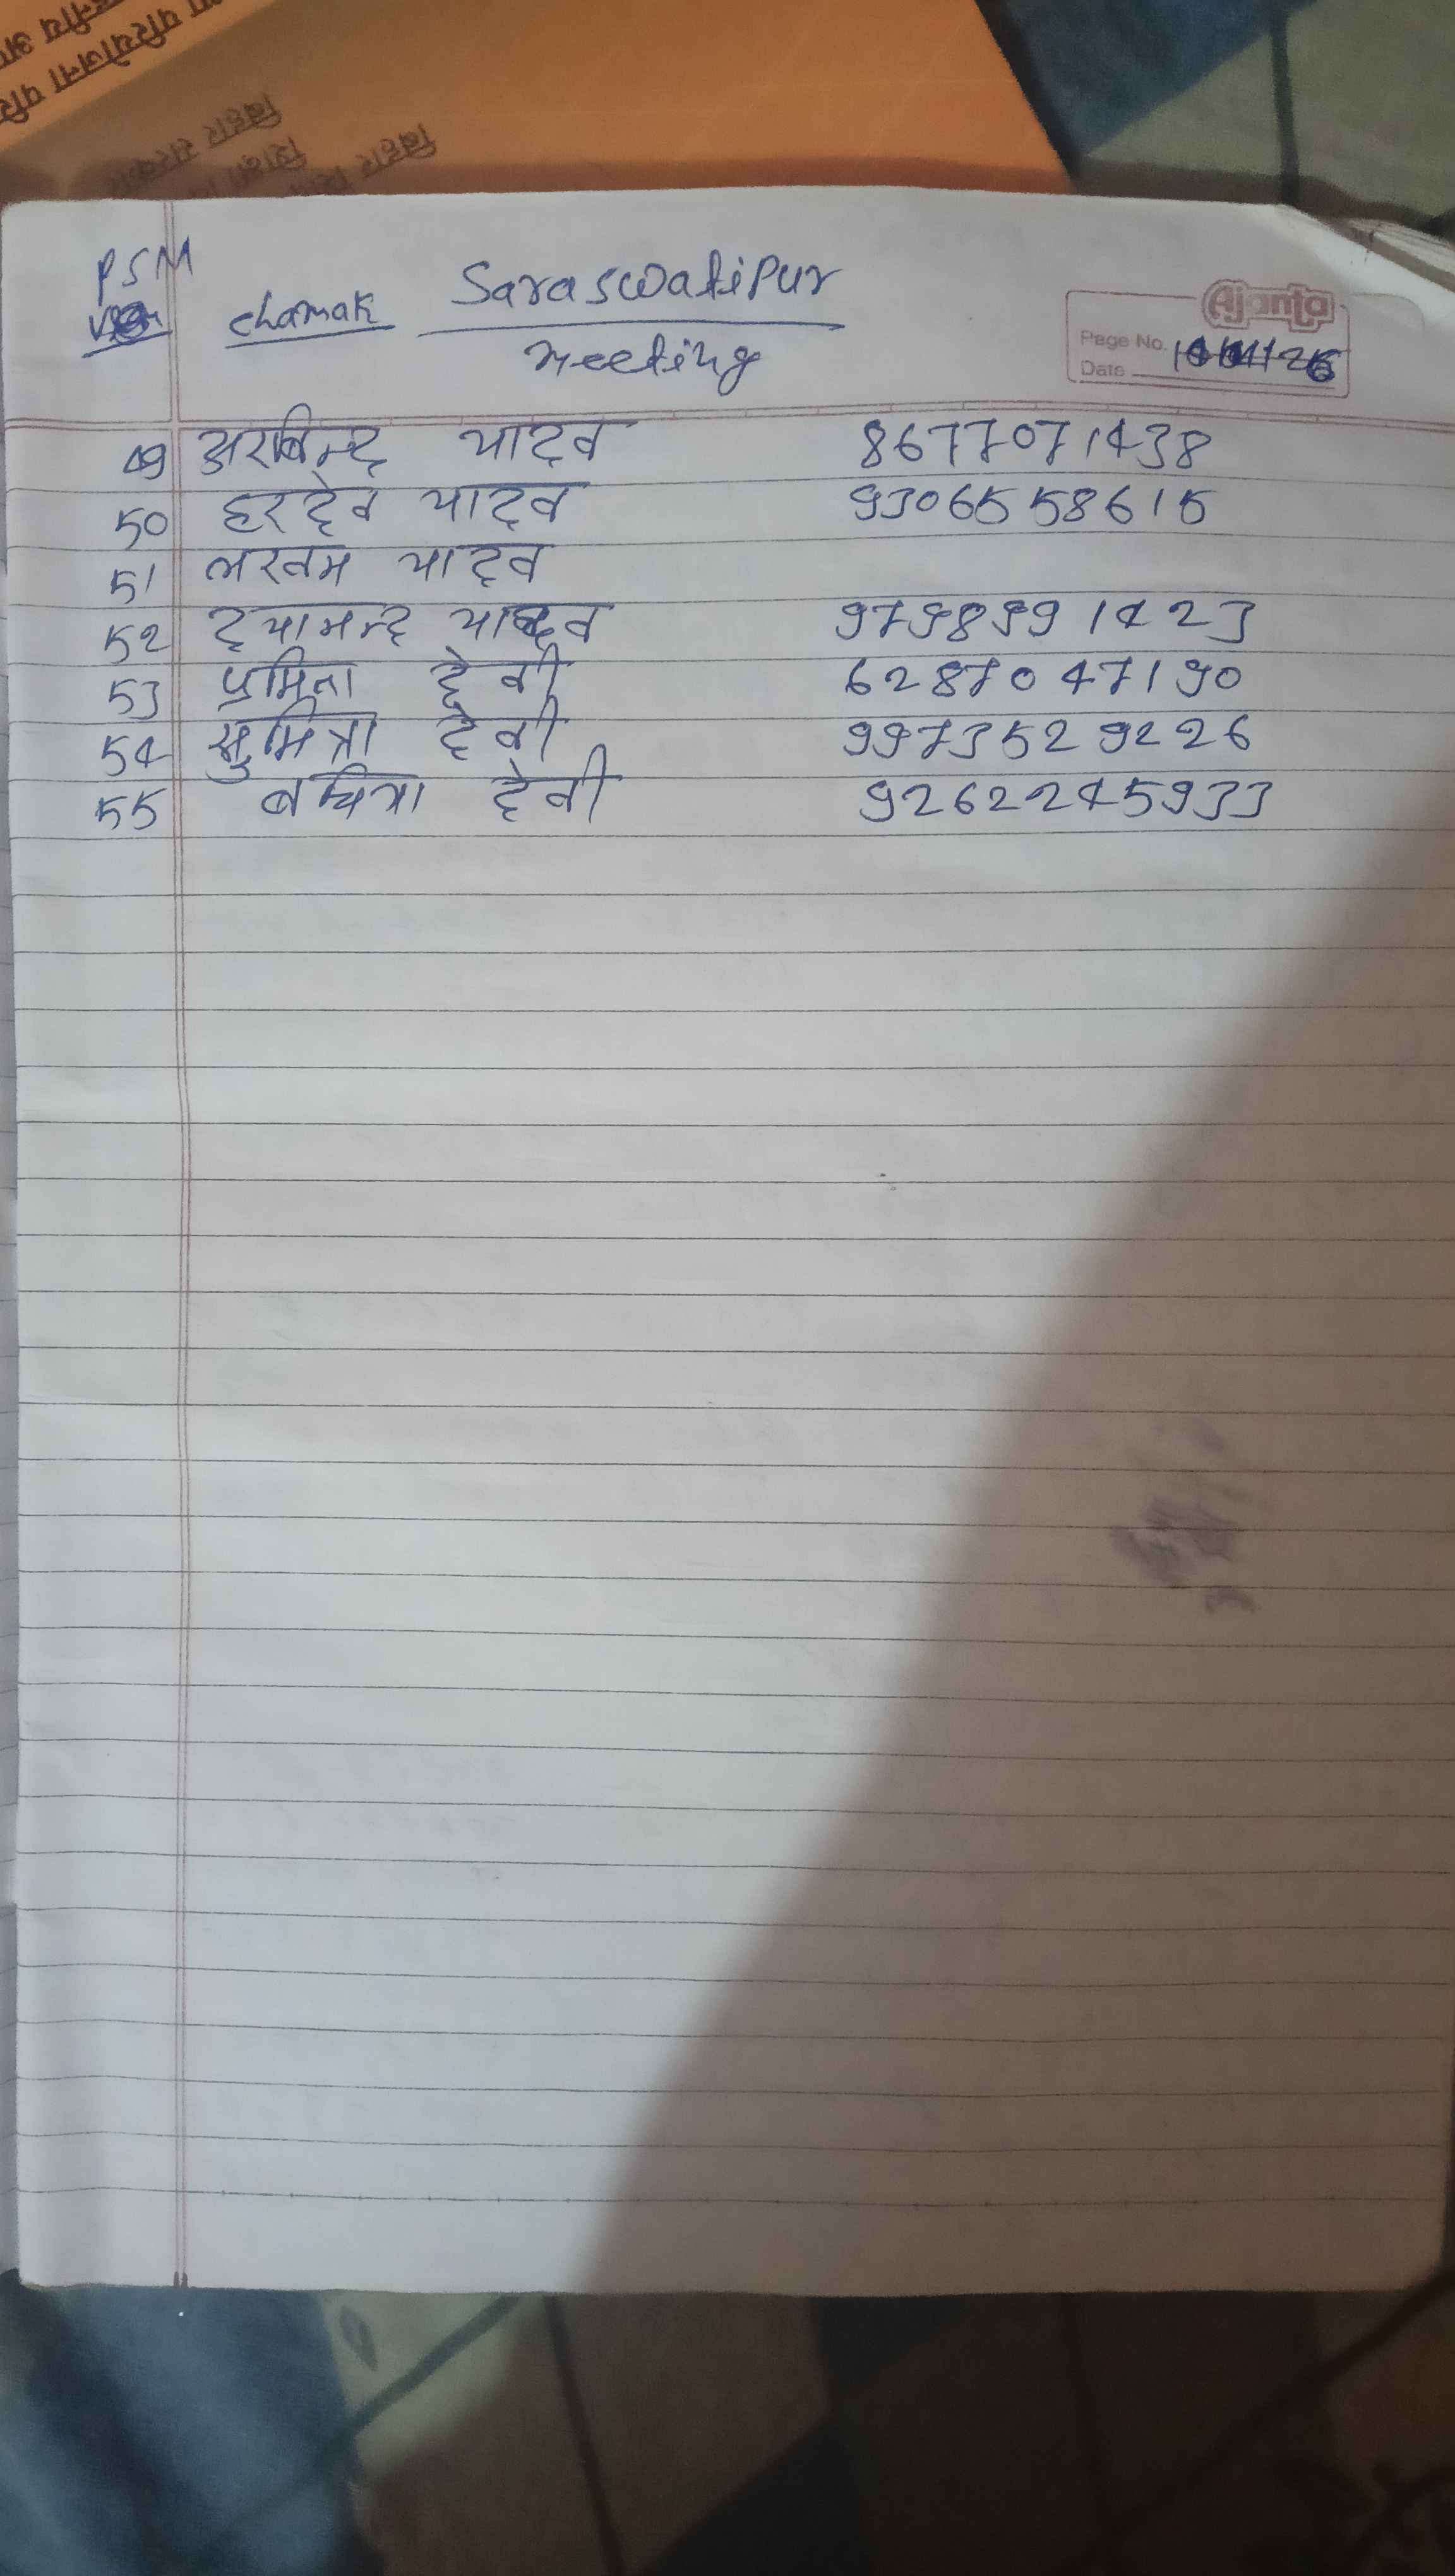 बिहार सरकार
PSM
chamak Saraswatipur
meeting
Ajanta
Page No.
Date
49 अरविन्द यादव 8677071438
50 हरदेव यादव 9306558615
51 लखन यादव
52 दयानन्द यादव 9798991423
53 प्रमिला देवी 6287047190
54 सुमित्रा देवी 9973529226
55 देवी 9262245933